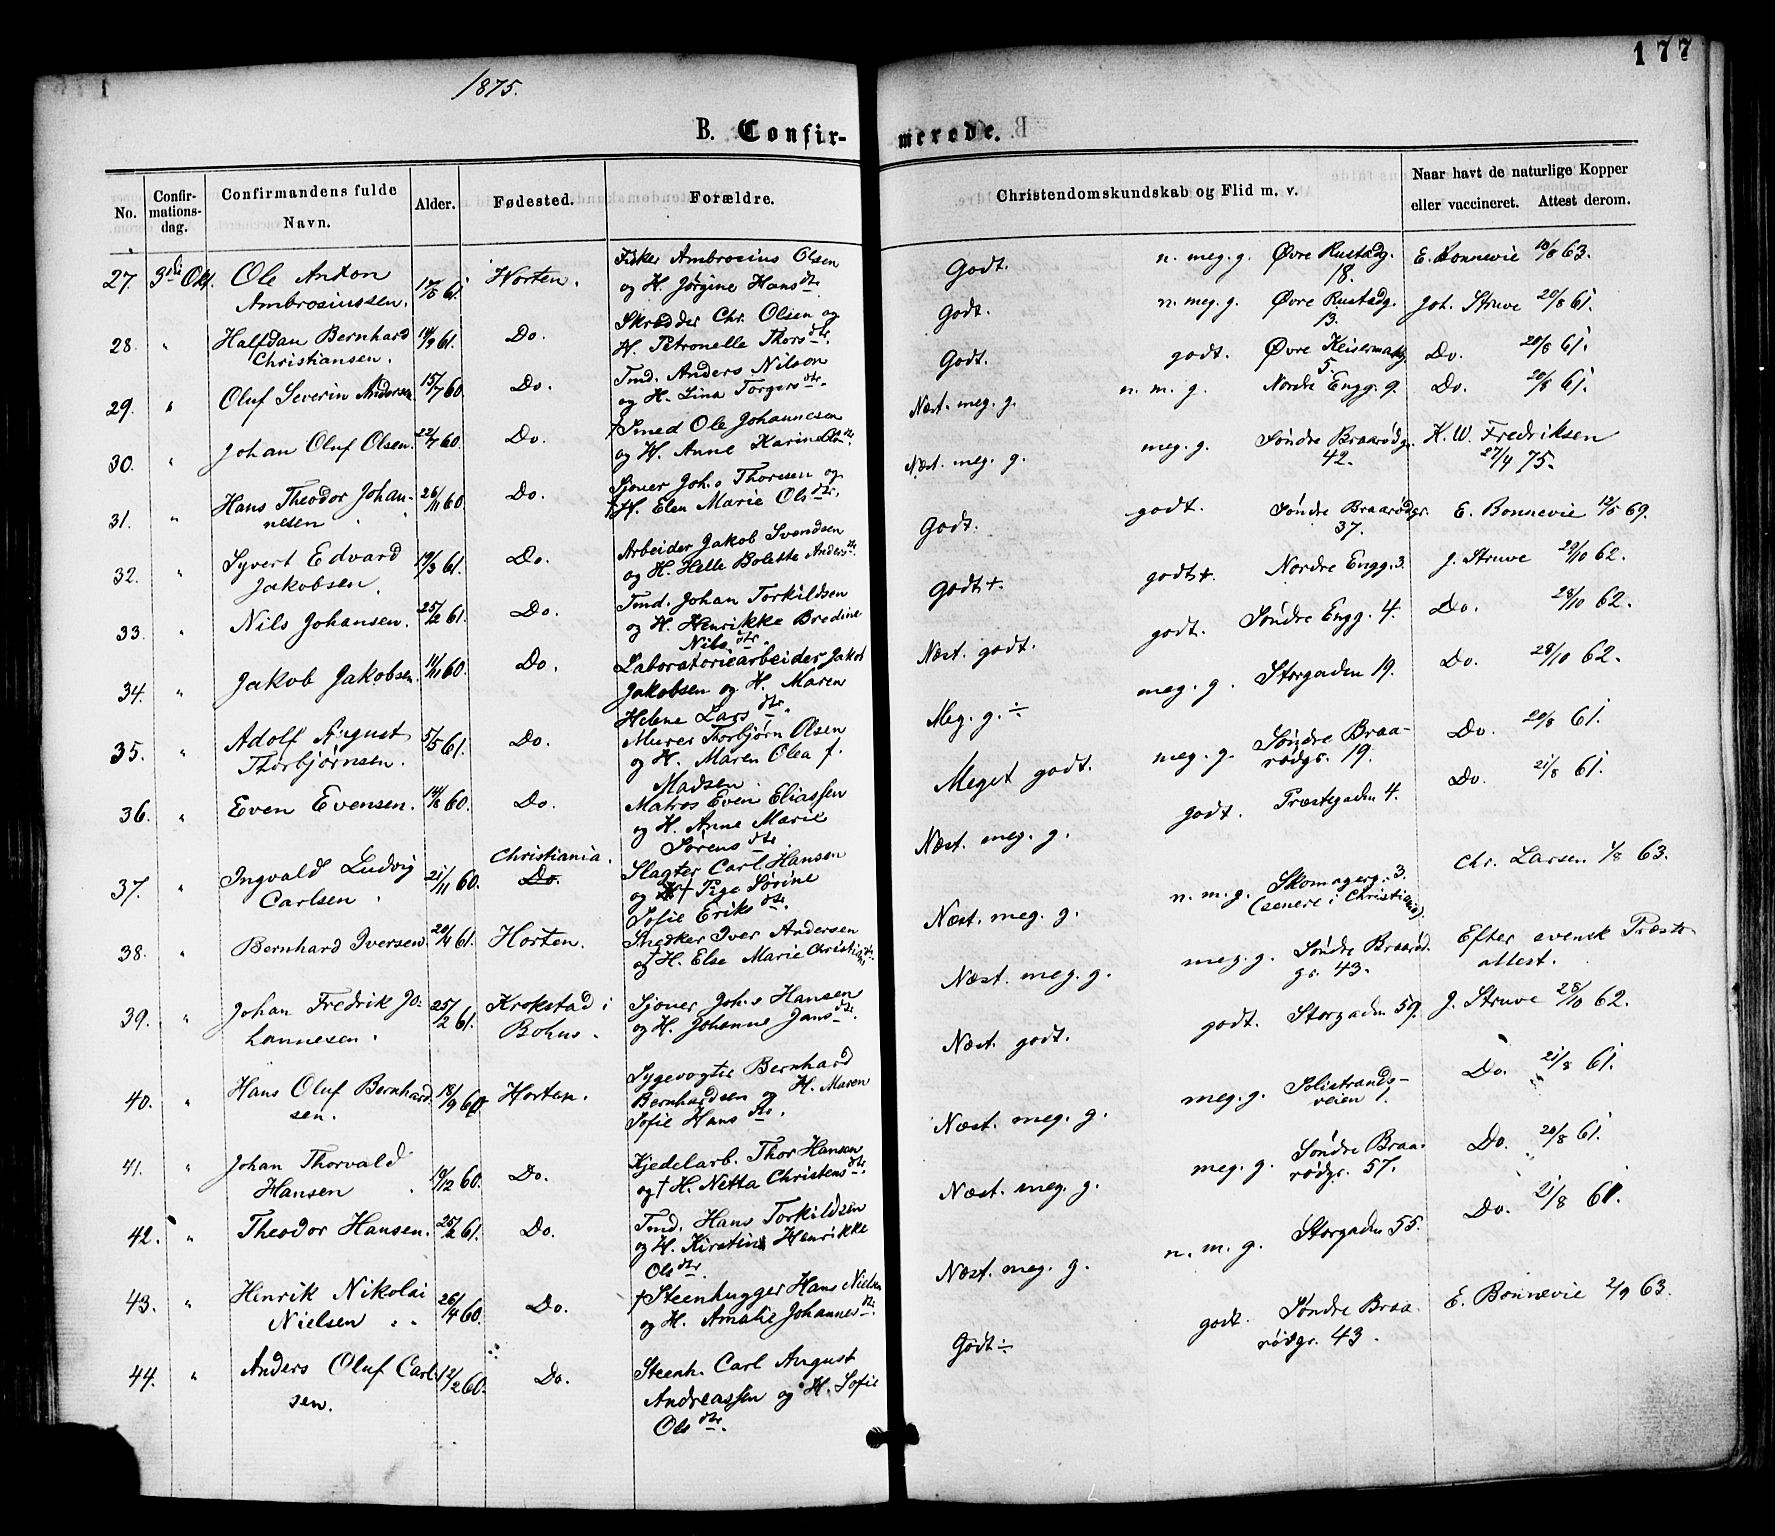 177
1875.
B. Confir-
merede.
No.
Confir-
mations-
dag.
Confirmandens fulde
Navn.
Alder.
Fødested.
Forældre.
Christendomskundskab og Flid m. v.
Naar havt de naturlige Kopper
eller vaccineret. Attest derom.
27. 3die Okt. Ole Anton
Ambrosiussen. 17/5 61. Horten.
Fisker Ambrosius Olsen
og H. Jørgine Hansdtr.
Godt. n. meg. g. Øvre Rustadg.
18. E. Bonnevie 10/8 63.
28. " Halfdan Bernhard
Christiansen. 14/9 61. Do.
Skrædder Chr. Olsen og
H. Petronelle Thorsdtr.
Godt. n. meg. g. Øvre Rustadg.
13. Joh. Struve 20/8 61.
29. " Oluf Severin Andersen 15/7 60. Do.
Tmd. Anders Nilsen
og H. Lina Torgersdtr.
Godt. godt. Øvre Keisermarkg.
5. Do. 20/8 61.
30. " Johan Oluf Olsen. 22/7 60. Do.
† Smed Ole Johannesen
og H. Anne Karine Olsdtr.
Næst. meg. g. n. m. g. Nordre Engg. 9. Do. 20/8 61.
31. " Hans Theodor Johan-
nesen 26/11 60. Do.
Sjøner Johs Thoresen og
† H. Elen Marie Olsdtr.
Næst. meg. g. meg. g. Søndre Braarødgr.
42. K. W. Fredriksen
27/4 75.
32. " Syvert Edvard
Jakobsen. 19/3 61. Do.
Arbeider Jakob Svendsen
og H. Helle Bolette Andersdtr.
Godt. godt. Søndre Braarødgr.
37. E. Bonnevie 12/5 69.
33. " Nils Johansen. 25/2 61. Do.
Tmd. Johan Torkildsen
og H. Henrikke Bredine
Nilsdtr.
Godt +. godt +. Nordre Engg. 3. J. Struve 29/10 62.
34. " Jakob Jakobsen. 11/11 60. Do.
Laboratoriearbeider Jakob
Jakobsen og H. Maren
Helene Larsdtr.
Næst. godt. godt. Søndre Engg. 4. Do. 28/10 62.
35. " Adolf August
Thorbjørnsen. 5/5 61. Do.
Murer Thorbjørn Olsen
og H. Maren Olea f.
Madsen.
Meg. g. ÷ meg. g. Storgaden 19. Do. 28/10 62.
36. " Even Evensen. 14/8 60. Do.
Matros Even Eliassen
og H. Anne Marie
Sørensdtr.
Meget godt. meg. g. Søndre Braa-
rødgr. 19. Do. 20/8 61.
37. " Ingvald Ludvig
Carlsen. 21/11 60. Christiania.
Do.
Slagter Carl Hansen
og † Pige Sørine
Sofie Eriksdtr.
Næst. meg. g. godt. Præstegaden 4. Do. 21/8 61.
38. " Bernhard Iversen. 20/4 61. Horten.
Snedker Iver Andersen
og † H. Else Marie Christiansdtr.
Næst. meg. g. n. m. g. Skomagerg. 3.
(senere i Christiania). Chr. Larsen 1/8 63.
39. " Johan Fredrik Jo-
hannesen. 25/2 61. Krokstad i
Bohus.
Sjøner Johs Hansen
og H. Johanne Jansdtr.
Næst. meg. g. meg. g. Søndre Braarød-
gr. 43. Efter svensk Præste-
attest.
40. " Hans Oluf Bernhard-
sen. 18/9 60. Horten.
Sygevogter Bernhard
Bernhardsen og H. Maren
Sofie Hansdtr.
Næst. godt. godt. Storgaden 59. J. Struve 28/10 62.
41. " Johan Thorvald
Hansen 19/12 60. Do.
Kjedelarb. Thor Hansen
og † H. Netta Christensdtr.
Næst. meg. g. meg. g. Solistrands-
veien 1. Do. 21/8 61.
42. " Theodor Hansen. 25/2 61. Do.
Tmd. Hans Torkildsen
og H. Kirstine Henrikke
Olsdtr.
Næst. meg. g. meg. g. Søndre Braa-
rødgr. 57. Do. 20/8 61.
43. " Henrik Nikolai
Nielsen 26/4 60. Do.
† Steenhugger Hans Nielsen
og H. Amalie Johannesdtr.
Næst. meg. g. n. m. g. Storgaden 55. Do. 21/8 61.
44. " Anders Oluf Carl-
sen. 12/2 60. Do.
Steenh. Carl August
Andreassen og H. Sofie
Olsdtr.
Godt ÷ godt. Søndre Braa-
rødgr. 43. E. Bonnevie 2/9 63.